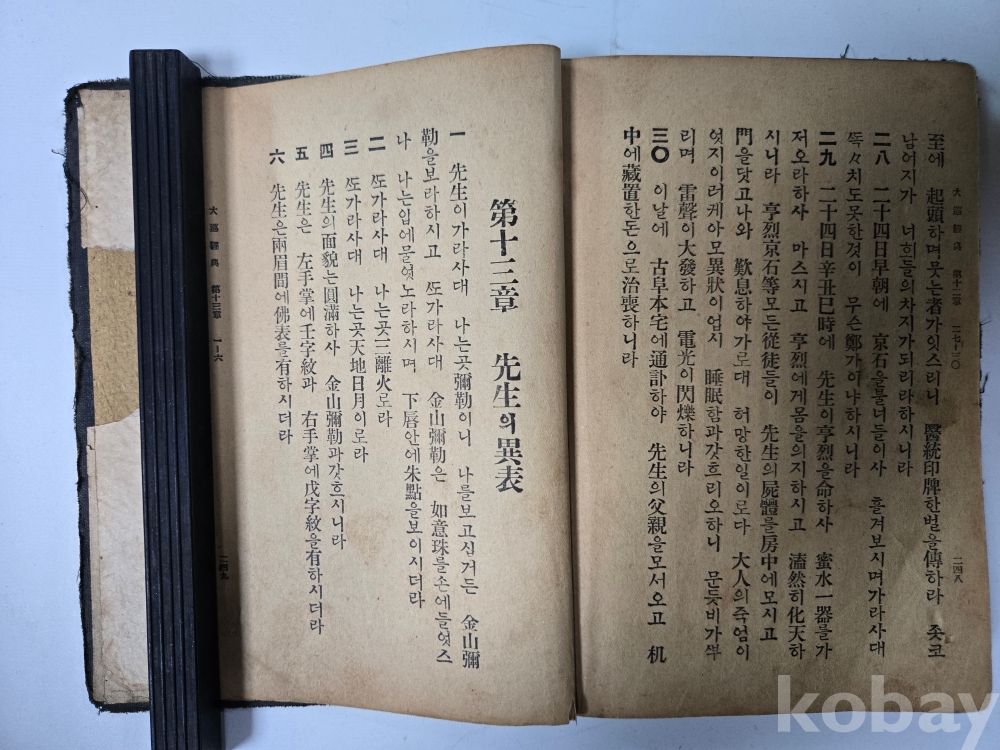 大巡經典 第十二章 二七—三〇
二四八
至에 起頭하며뭇는者가잇스리니 醫統印牌한벌을傳하라 죳코
남어지가 너희들의차지가되리라하시니라
二八 二十四日早朝에 京石을불너들이사 흘겨보시며가라사대
ᄯᅩᆨᄯᅩᆨ치도못한것이 무슨鄭가이냐하시니라
二九 二十四日辛丑巳時에 先生이亨烈을命하사 蜜水一器를가
저오라하사 마스시고 亨烈에게몸을의지하시고 溘然히化天하
시니라 亨烈京石等모든從徒들이 先生의屍體를房中에모시고
門을닷고나와 歎息하야가로대 허망한일이로다 大人의죽엄이
엇지이러케아모異狀이업시 睡眠함과갓흐리오하니 문듯비가ᄲᅮ
리며 雷聲이大發하고 電光이閃爍하니라
三〇 이날에 古阜本宅에通訃하야 先生의父親을모서오고 机
中에藏置한돈으로治喪하니라
第十三章 先生의異表
一 先生이가라사대 나는곳彌勒이니 나를보고십거든 金山彌
勒을보라하시고 ᄯᅩ가라사대 金山彌勒은 如意珠를손에들엇스
나 나는입에물엇노라하시며 下唇안에朱點을보이시더라
二 ᄯᅩ가라사대 나는곳三離火로라
三 ᄯᅩ가라사대 나는곳天地日月이로라
四 先生의面貌는圓滿하사 金山彌勒과갓흐시니라
五 先生은 左手掌에壬字紋과 右手掌에戊字紋을有하시더라
六 先生은兩眉間에佛表를有하시더라
大巡經典 第十三章 一—六
二四九
kobay